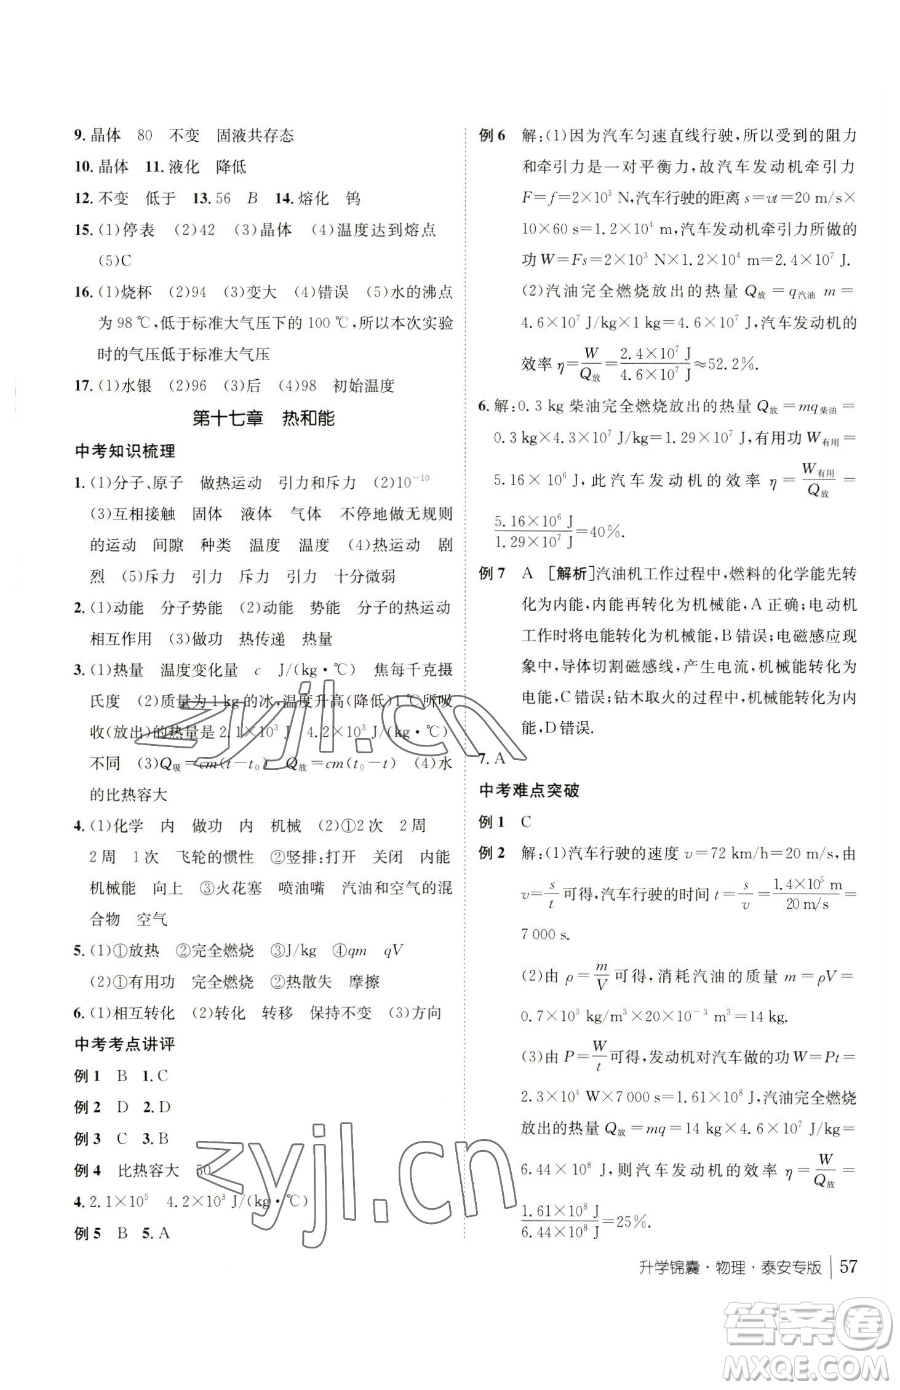 9.晶体　80　不变　固液共存态
10.晶体　11.液化　降低
12.不变　低于　13.56　B　14.熔化　钨
15.(1)停表　(2)42　(3)晶体　(4)温度达到熔点
(5)C
16.(1)烧杯　(2)94　(3)变大　(4)错误　(5)水的沸点
为98 ℃,低于标准大气压下的100 ℃,所以本次实验
时的气压低于标准大气压
17.(1)水银　(2)96　(3)后　(4)98　初始温度
第十七章　热和能
中考知识梳理
1.(1)分子、原子　做热运动　引力和斥力　(2)10⁻¹⁰
(3)互相接触　固体　液体　气体　不停地做无规则
的运动　间隙　种类　温度　温度　(4)热运动　剧
烈　(5)斥力　引力　斥力　引力　十分微弱
2.(1)动能　分子势能　(2)动能　分子的热运动
相互作用　(3)做功　热传递　热量
3.(1)热量　温度变化量　c　J/(kg·℃)　焦每千克摄
氏度　(2)质量为1 kg的冰,温度升高(降低)1 ℃所吸
收(放出)的热量是2.1×10³ J　4.2×10³ J/(kg·℃)
不同　(3)Q吸=cm(t-t₀)　Q放=cm(t₀-t)　(4)水
的比热容大
4.(1)化学　内　做功　内　机械　(2)①2次　2周
2周　1次　飞轮的惯性　②竖排:打开　关闭　内能
机械能　向上　③火花塞　喷油嘴　汽油和空气的混
合物　空气
5.(1)①放热　②完全燃烧　③J/kg　④qm　qV
(2)①有用功　完全燃烧　②热散失　摩擦
6.(1)相互转化　(2)转化　转移　保持不变　(3)方向
中考考点讲评
例1　B　1.C
例2　D　2.D
例3　C　3.B
例4　比热容大　50
4.2.1×10⁵　4.2×10³ J/(kg·℃)
例5　B　5.A
例6　解:(1)因为汽车匀速直线行驶,所以受到的阻力
和牵引力是一对平衡力,故汽车发动机牵引力
F=f=2×10³ N,汽车行驶的距离s=vt=20 m/s×
10×60 s=1.2×10⁴ m,汽车发动机牵引力所做的
功W=Fs=2×10³ N×1.2×10⁴ m=2.4×10⁷ J.
(2)汽油完全燃烧放出的热量Q放=q汽油 m=
4.6×10⁷ J/kg×1 kg=4.6×10⁷ J,汽车发动机的
效率η=W/Q放=2.4×10⁷ J/4.6×10⁷ J≈52.2%.
6.解:0.3 kg柴油完全燃烧放出的热量Q放=mq柴油=
0.3 kg×4.3×10⁷ J/kg=1.29×10⁷ J,有用功W有用=
5.16×10⁶ J,此汽车发动机的效率η=W有用/Q放=
5.16×10⁶ J/1.29×10⁷ J=40%.
例7　A　[解析]汽油机工作过程中,燃料的化学能先转
化为内能,内能再转化为机械能,A正确;电动机
工作时将电能转化为机械能,B错误;电磁感应现
象中,导体切割磁感线,产生电流,机械能转化为
电能,C错误;钻木取火的过程中,机械能转化为内
能,D错误.
7.A
中考难点突破
例1　C
例2　解:(1)汽车行驶的速度v=72 km/h=20 m/s,由
v=s/t可得,汽车行驶的时间t=s/v=1.4×10⁵ m/20 m/s=
7 000 s.
(2)由ρ=m/V可得,消耗汽油的质量m=ρV=
0.7×10³ kg/m³×20×10⁻³ m³=14 kg.
(3)由P=W/t可得,发动机对汽车做的功W=Pt=
2.3×10⁴ W×7 000 s=1.61×10⁸ J,汽油完全燃烧
放出的热量Q放=mq=14 kg×4.6×10⁷ J/kg=
6.44×10⁸ J,则汽车发动机的效率η=W/Q放=
1.61×10⁸ J/6.44×10⁸ J=25%.
升学锦囊·物理·泰安专版　57
zyjl.cn
zyjl.cn
答案圈
MXQE.COM